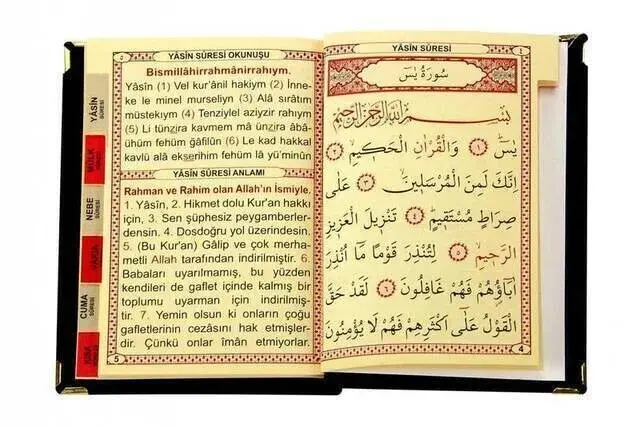 YÂSİN SÛRESİ OKUNUŞU
٥
Bismillâhirrahmânirrahıym.
Yâsîn (1) Vel kur'ânil hakiym (2) İnne-
ke le minel murseliyn (3) Alâ sırâtım
müstekıym (4) Tenziylel aziyzir rahıym
(5) Li tünzira kavmem mâ ünzira âbâ-
ühüm fehüm gâfilûn (6) Le kad hakkal
kavlü alâ ekserihim fehüm lâ yü'minûn
YÂSİN SÛRESİ ANLAMI
Rahman ve Rahim olan Allah'ın İsmiyle.
1. Yâsîn, 2. Hikmet dolu Kur'an hakkı
için, 3. Sen şüphesiz peygamberler-
densin. 4. Dosdoğru yol üzerindesin.
5. (Bu Kur'an) Gâlip ve çok merha-
metli Allah tarafından indirilmiştir. 6.
Babaları uyarılmamış, bu yüzden
kendileri de gaflet içinde kalmış bir
toplumu uyarman için indirilmiş-
tir. 7. Yemin olsun ki onların çoğu
gafletlerinin cezâsını hak etmişler-
dir. Çünkü onlar îmân etmiyorlar.
5
YÂSİN SÛRESİ
MÜLK
NEBE SÛRESİ
CUMA SÛRESİ
YÂSİN SÛRESİ
٤
سُورَةُ يٰسٓ
بِسْمِ اللّٰهِ الرَّحْمٰنِ الرَّحِيمِ
يٰسٓ ﴿١﴾ وَالْقُرْاٰنِ الْحَكِيمِ ﴿٢﴾
اِنَّكَ لَمِنَ الْمُرْسَلِينَ ﴿٣﴾ عَلٰى
صِرَاطٍ مُسْتَقِيمٍ ﴿٤﴾ تَنْزِيلَ الْعَزِيزِ
الرَّحِيمِ ﴿٥﴾ لِتُنْذِرَ قَوْمًا مَا اُنْذِرَ
اٰبَاؤُهُمْ فَهُمْ غَافِلُونَ ﴿٦﴾ لَقَدْ حَقَّ
الْقَوْلُ عَلٰى اَكْثَرِهِمْ فَهُمْ لَا يُؤْمِنُونَ
4